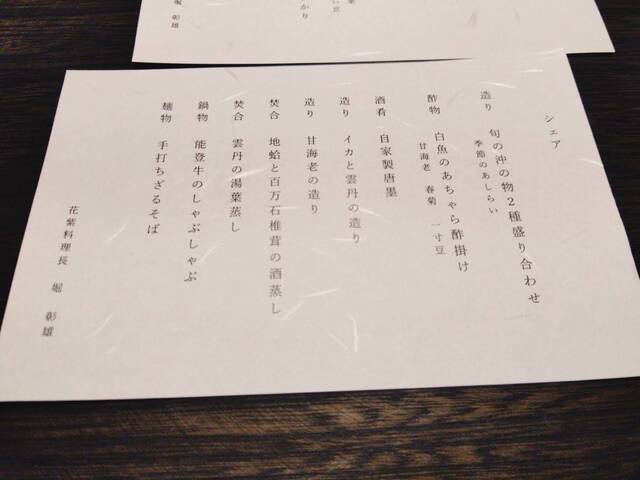 シェア
造り 旬の沖の物2種盛り合わせ
季節のあしらい
酢物 白魚のあちゃら酢掛け
甘海老 春菊 一寸豆
酒肴 自家製唐墨
造り イカと雲丹の造り
造り 甘海老の造り
焚合 地蛤と百万石椎茸の酒蒸し
焚合 雲丹の湯葉蒸し
鍋物 能登牛のしゃぶしゃぶ
麺物 手打ちざるそば
花紫料理長 堀 彰雄
彰雄